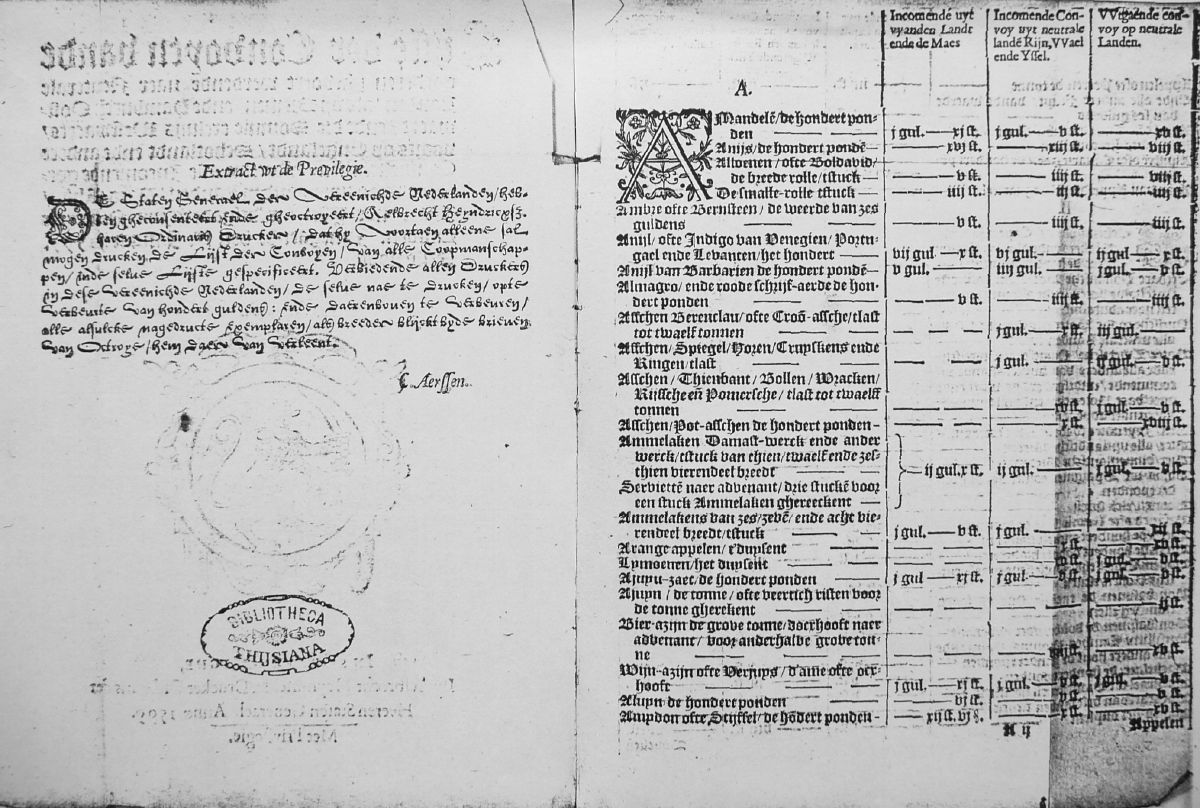 Extract wt de Previlegie.
DE Staten Generael der Vereenichde Nederlanden / heb-
ben gheconsenteert ende gheoctroyeert / Aelbrecht Heyndricxsz.
haren Ordinaris Drucker / dat hy voortaen alleene sal
mogen drucken de Lijst der Convoyen / van alle Coopmanschap-
pen / inde selve Lijste gespecificeert. Verbiedende allen Druckers
in dese Vereenichde Nederlanden / de selve nae te drucken / opte
verbeurte van hondert guldens: Ende daerenboven te verbeuren /
alle alsulcke nagedructe exemplaren / als breeder blijckt byde brieven
van Octroye / hem daer van verleent.
C. Aerssen.
BIBLIOTHECA
THYSIANA
Incomende uyt
vyanden Landt
ende de Maes
Incomende Con-
voy uyt neutrale
landē Rijn, VVael
ende Yssel.
VVtgaende con-
voy op neutrale
Landen.
A.
AMandelē / de hondert pon-
den j gul. — xj st. j gul. — v st. — xv st.
Anijs / de hondert pondē — xvj st. — xiij st. — viij st.
Alvenen / ofte Boldavid /
de breede rolle / tstuck — v st. — iiij st. — iiij st.
De smalle-rolle tstuck — iiij st. — iij st. — iij st.
Ambre ofte Bernsteen / de weerde van zes
guldens — v st. — iiij st. — iiij st.
Anijl / ofte Indigo van Venegien / Portu-
gael ende Levanten / het hondert vij gul. — x st. vj gul. ij gul. — x st.
Anijl van Barbarien de hondert pondē v gul. iiij gul. j gul. — x st.
Almagro / ende roode schrijf-aerde de hon-
dert ponden — v st. — iiij st. — iiij st.
Asschen Berenclau / ofte Croō-assche / tlast
tot twaelf tonnen — j gul. — x st. iij gul.
Asschen / Spiegel / Horen / Cruyskens ende
Ringen / tlast — j gul. — v st.
Asschen / Thienbant / Bollen / Wracken /
Russche eñ Pomersche / tlast tot twaelff
tonnen — xv st. j gul. — v st.
Asschen / Pot-asschen de hondert ponden — x st. — xviij st.
Ammelaken Damast-werck ende ander
werck / tstuck van thien / twaelf ende zes-
thien vierendeel breedt ij gul. x st. ij gul. j gul. — v st.
Serviettē naer advenant / drie stuckē voor
een stuck Ammelaken ghereeckent
Ammelakens van zes / zevē / ende acht vie-
rendeel breedt / tstuck j gul. — v st. j gul. — xij st.
Arange appelen / t'duysent — x st. — xv st.
Lymoenen / het duysent — v st.
Ajuyn-zaet / de hondert ponden j gul — xj st. j gul. — v st. j gul. — v st.
Ajuyn / de tonne / ofte veertich risten voor
de tonne gherekent — ij st.
Bier-azijn de grove tonne / docxhooft naer
advenant / voor anderhalve grove ton-
ne — xv st.
Wijn-azijn ofte Verjuys / d'ame ofte ocx-
hooft j gul. — xj st. j gul. — v st. j gul. — v st.
Aluyn de hondert ponden — vj st. — v st. — v st.
Amydon ofte Stijffel / de hōdert ponden — xij st. vj d. — x st. — xv st.
A ij
Appelen